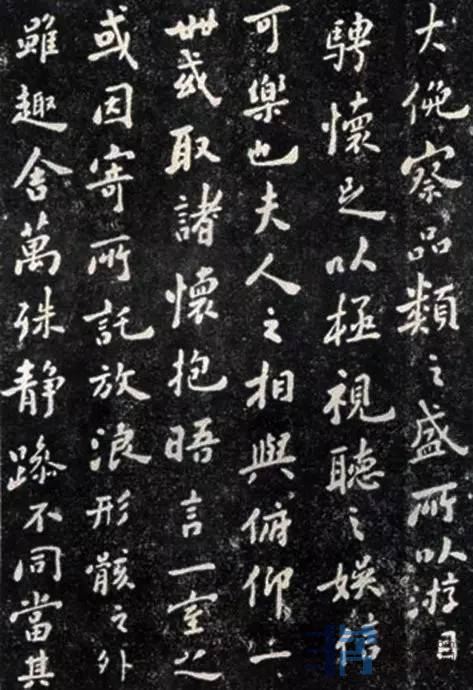 大俛察品類之盛所以游目
騁懷足以極視聽之娛信
可樂也夫人之相與俯仰一
世或取諸懷抱晤言一室之
或因寄所託放浪形骸之外
雖趣舍萬殊静躁不同當其